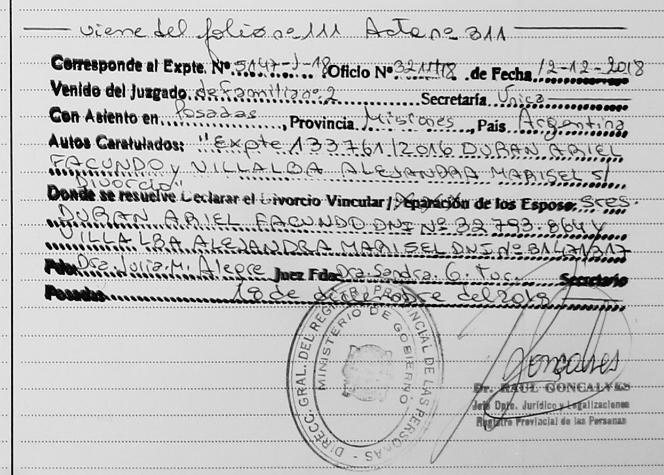 viene del folio nº 111 Acta nº 311
Corresponde al Expte. Nº 5147-J-18 Oficio Nº 3211/18 de Fecha 12-12-2018
Venido del Juzgado de Familia nº 2 Secretaría Única
Con Asiento en Posadas, Provincia Misiones, País Argentina
Autos Caratulados: "Expte 133761/2016 DURAN ARIEL
FACUNDO y VILLALBA ALEJANDRA MARISEL S/
Divorcio"
Donde se resuelve Declarar el Divorcio Vincular / Separación de los Esposos Sres.
DURAN ARIEL FACUNDO DNI Nº 32.793.864 y
VILLALBA ALEJANDRA MARISEL DNI Nº 31471217
Fdo. Dra. Julia M. Alegre Juez Fdo Dra. Sandra G. Secretario
Posadas 18 de diciembre del 2018
DIRECC. GRAL. DEL REGISTRO PROVINCIAL DE LAS PERSONAS
MINISTERIO DE GOBIERNO
Goncalves
Dr. RAUL GONCALVES
Jefe Dpto. Jurídico y Legalizaciones
Registro Provincial de las Personas